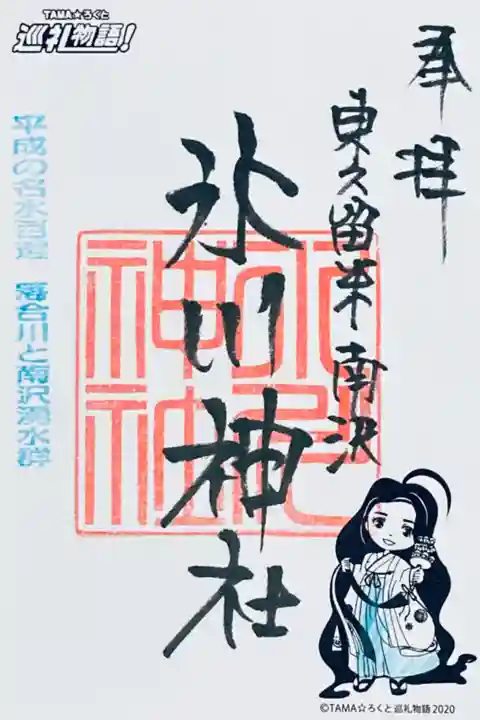 TAMA☆ろくと
巡礼物語!
奉拝
東久留米南沢
氷川神社
平成の名水百選 落合川と南沢湧水群
©TAMA☆ろくと巡礼物語 2020